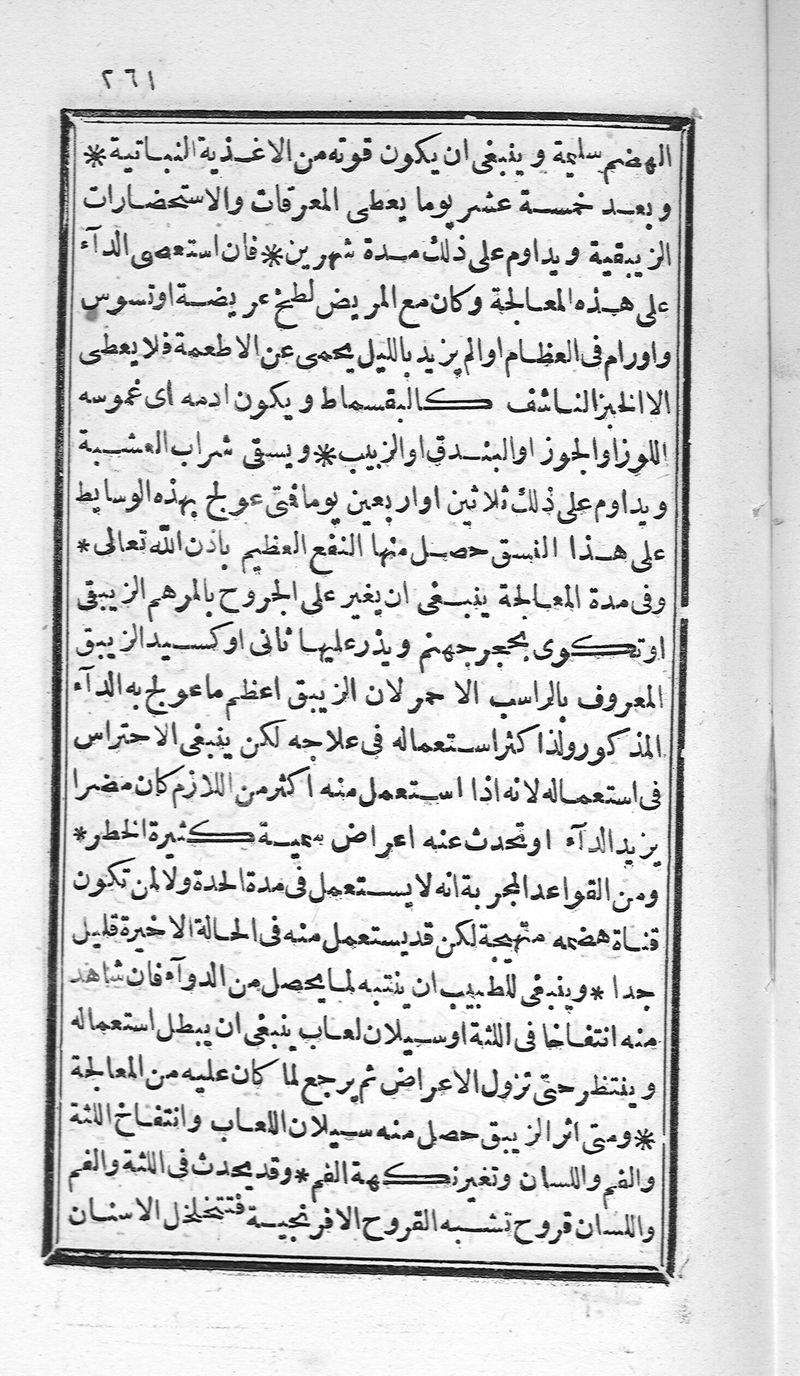 ٢٦١
الهضم سليمة وينبغى ان يكون قوته من الاغذية النباتية *
وبعد خمسة عشر يوما يعطى المعرقات والاستحضارات
الزيبقية ويداوم على ذلك مدة شهرين * فان استعصى الدآء
على هذه المعالجة وكان مع المريض لطخ عريضة او تسوس
واورام فى العظام او الم يزيد بالليل يحمى عن الاطعمة فلا يعطى
الا الخبز الناشف كالبقسماط ويكون ادمه اى غموسه
اللوز او الجوز او البندق او الزبيب * ويسقى شراب العشبة
ويداوم على ذلك ثلاثين او اربعين يوما فمتى عولج بهذه الوسايط
على هذا النسق حصل منها النفع العظيم باذن الله تعالى *
وفى مدة المعالجة ينبغى ان يغير على الجروح بالمرهم الزيبقى
او تكوى بحجر جهنم ويذر عليها ثانى اوكسيد الزيبق
المعروف بالراسب الاحمر لان الزيبق اعظم ما عولج به الدآء
المذكور ولذا كثر استعماله فى علاجه لكن ينبغى الاحتراس
فى استعماله لانه اذا استعمل منه اكثر من اللازم كان مضرا
يزيد الدآء او تحدث عنه اعراض سمية كثيرة الخطر *
ومن القواعد المجربة انه لا يستعمل فى مدة الحدة ولا لمن تكون
قناة هضمه متهيجة لكن قد يستعمل منه فى الحالة الاخيرة قليل
جدا * وينبغى للطبيب ان ينتبه لما يحصل من الدوآء فان شاهد
منه انتفاخا فى اللثة او سيلان لعاب ينبغى ان يبطل استعماله
وينتظر حتى تزول الاعراض ثم يرجع لما كان عليه من المعالجة
* ومتى اثر الزيبق حصل منه سيلان اللعاب وانتفاخ اللثة
والفم واللسان وتغير نكهة الفم * وقد يحدث فى اللثة والفم
واللسان قروح تشبه القروح الافرنجية فتتخلخل الاسنان